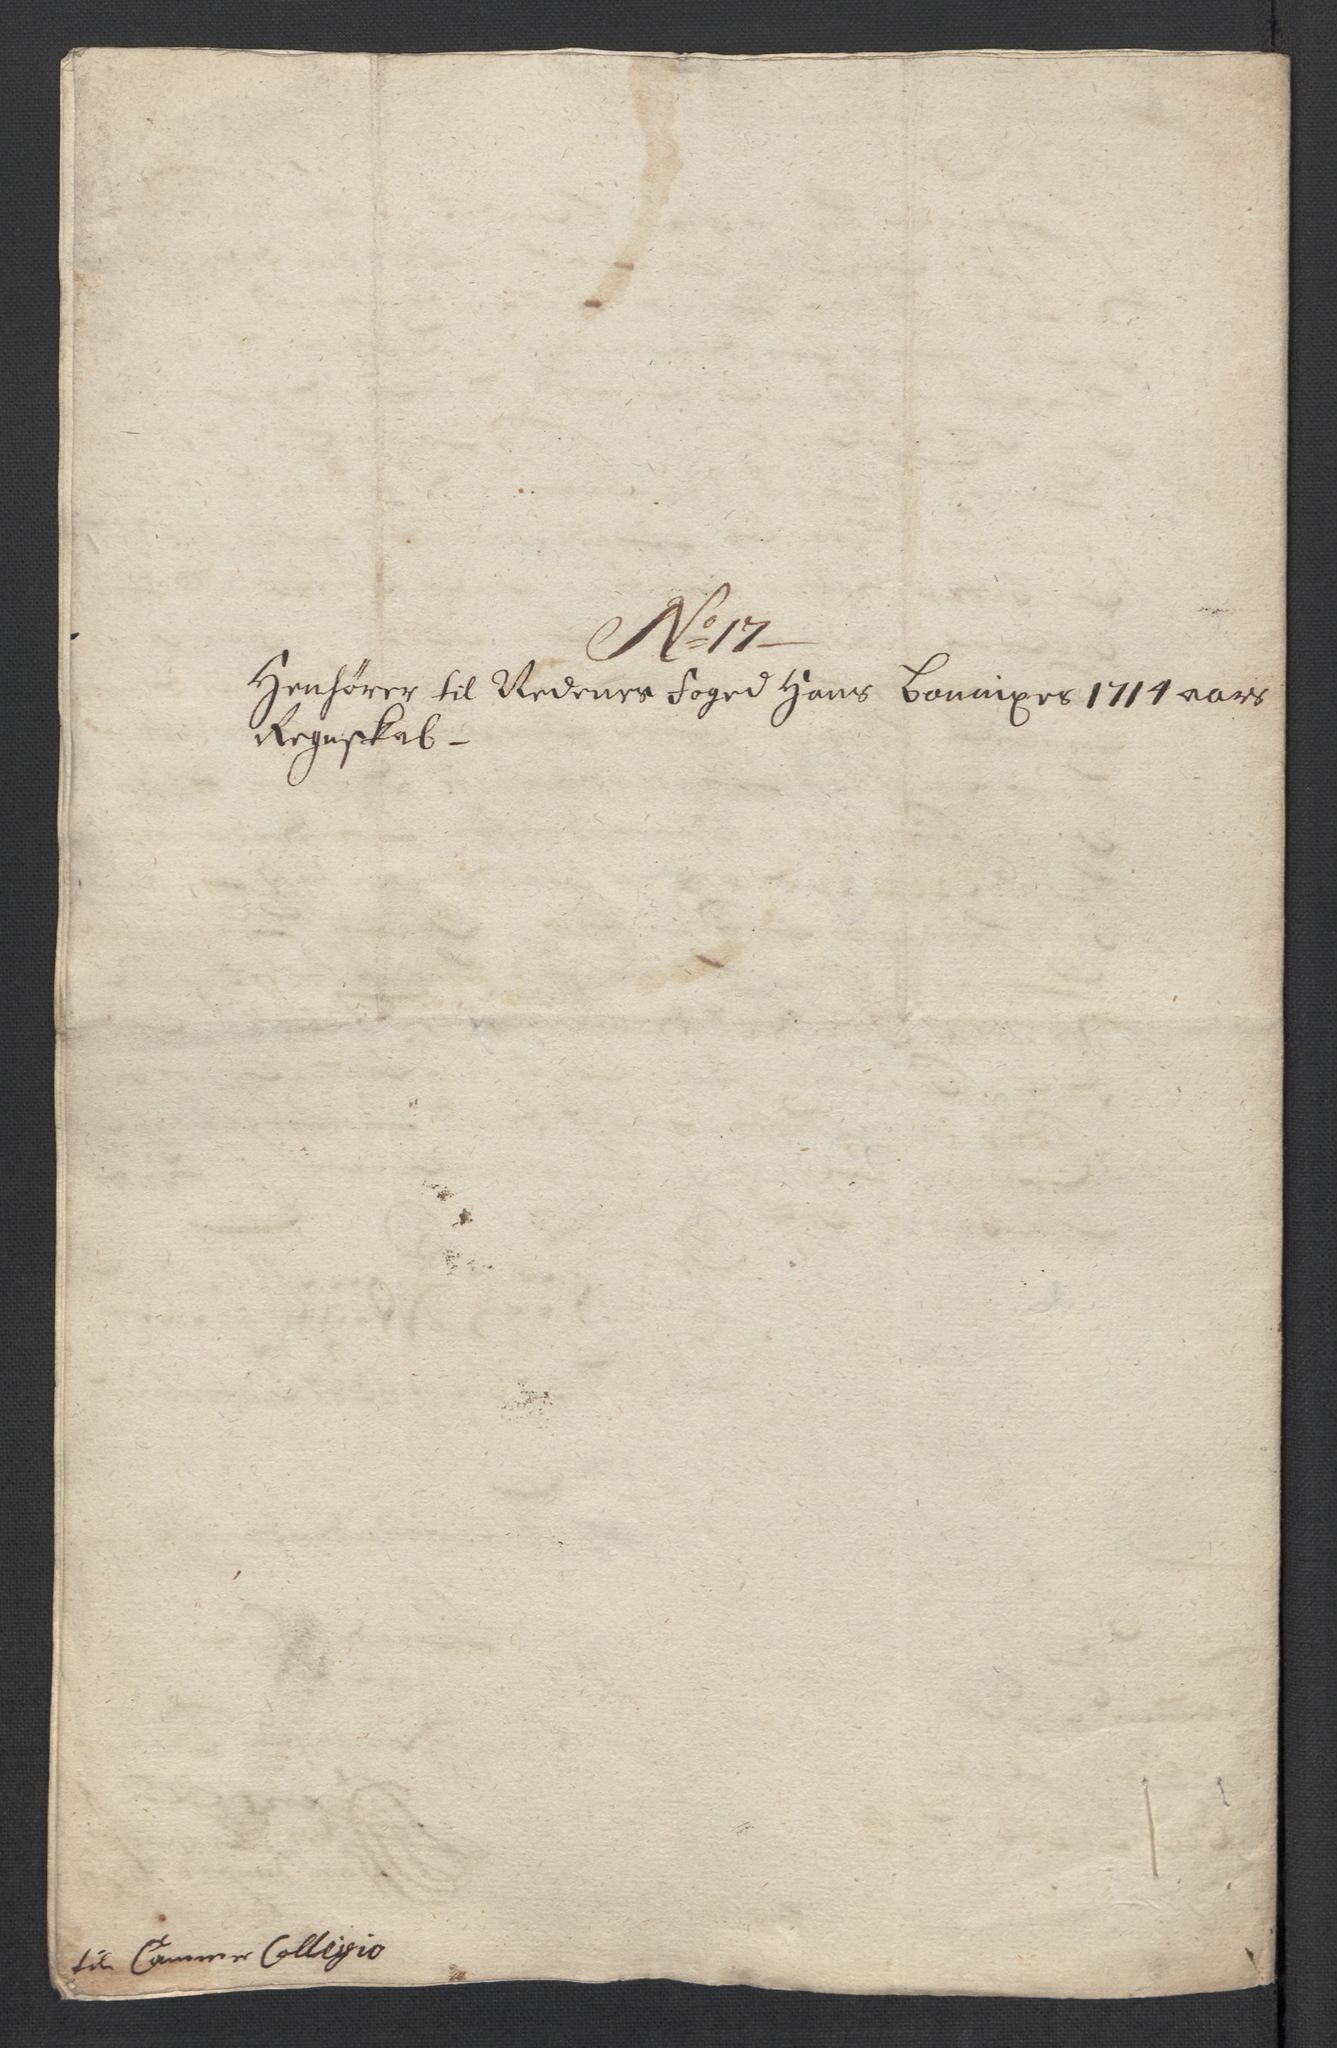 No 17
Henhører til Nedenes Foged Hans Bonnixes 1714 aars
Regnskab
til Cammer Collegio